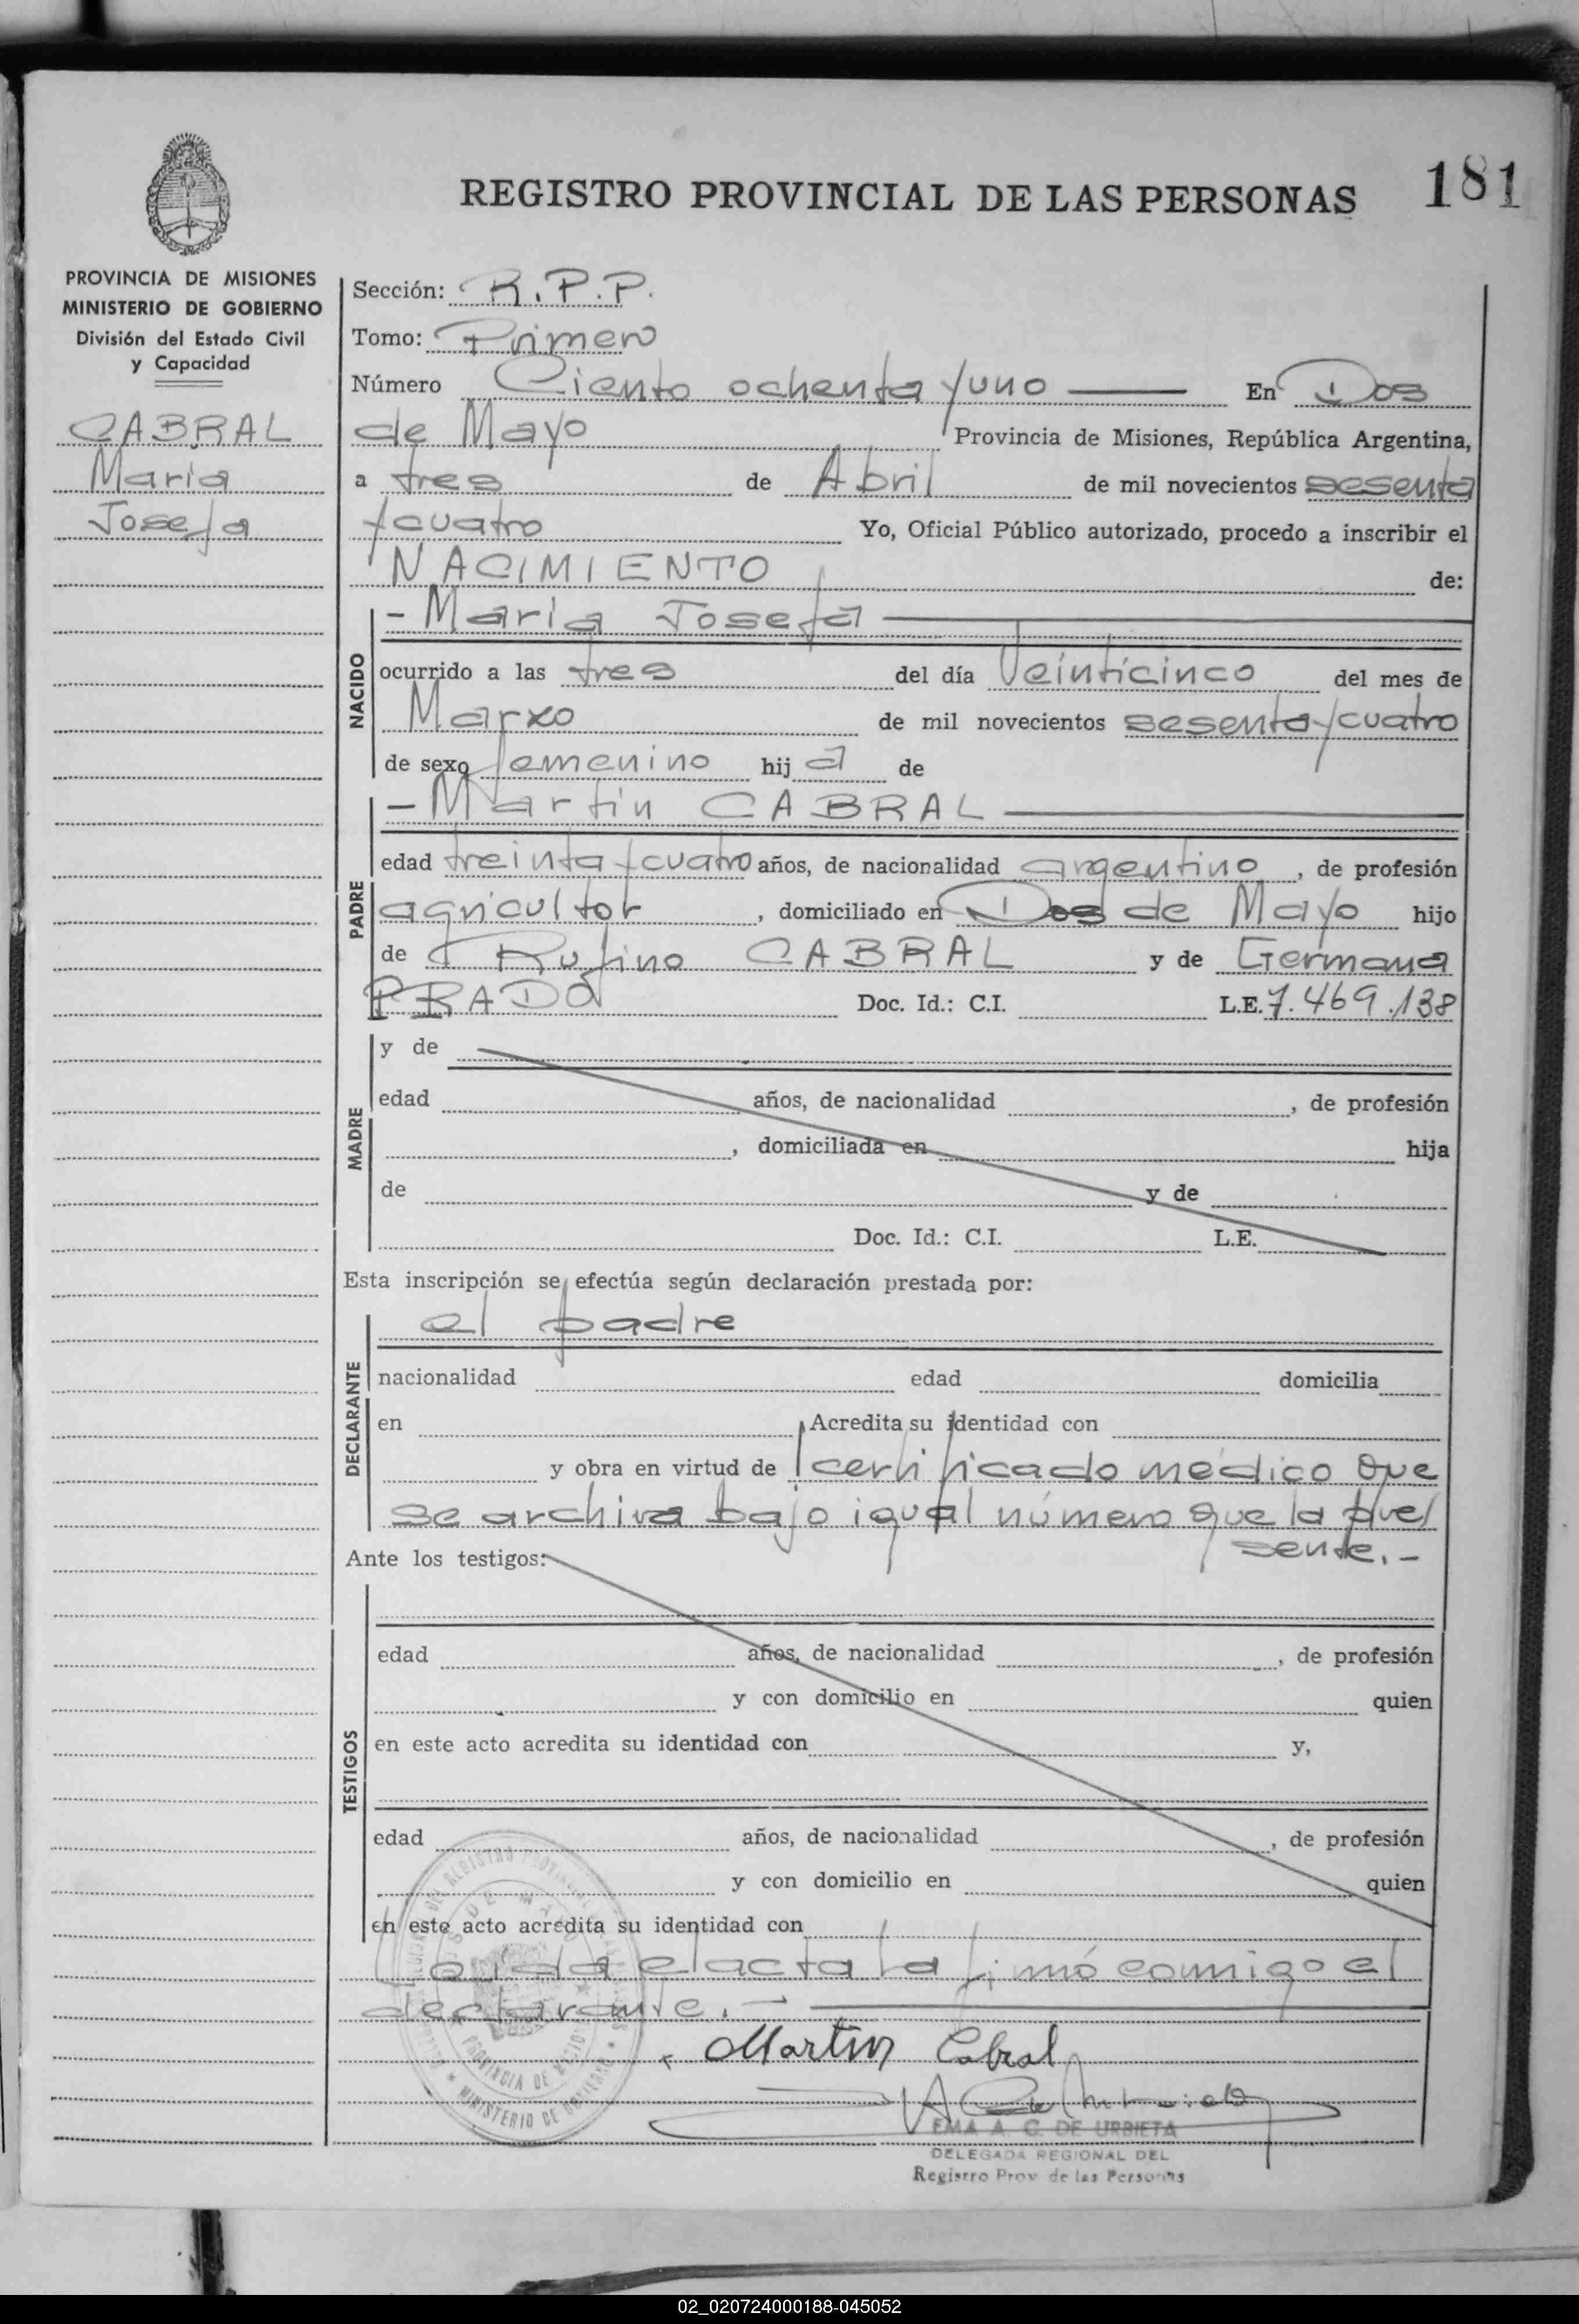 REGISTRO PROVINCIAL DE LAS PERSONAS 181
PROVINCIA DE MISIONES
MINISTERIO DE GOBIERNO
División del Estado Civil
y Capacidad
CABRAL
Maria
Josefa
Sección: R.P.P.
Tomo: Primero
Número Ciento ochenta y uno En Dos
de Mayo Provincia de Misiones, República Argentina,
a tres de Abril de mil novecientos sesenta
y cuatro Yo, Oficial Público autorizado, procedo a inscribir el
NACIMIENTO de:
NACIDO
- Maria Josefa
ocurrido a las tres del día Veinticinco del mes de
Marzo de mil novecientos sesenta y cuatro
de sexo femenino hij a de
PADRE
- Martin CABRAL
edad treinta y cuatro años, de nacionalidad argentino, de profesión
agricultor, domiciliado en Dos de Mayo hijo
de Rufino CABRAL y de Germana
PRADO Doc. Id.: C.I. L.E. 7.469.138
MADRE
y de
edad años, de nacionalidad , de profesión
, domiciliada en hija
de y de
Doc. Id.: C.I. L.E.
Esta inscripción se efectúa según declaración prestada por:
DECLARANTE
el padre
nacionalidad edad domicilia
en Acredita su identidad con
y obra en virtud de certificado médico que
se archiva bajo igual número que la pre/
sente.-
Ante los testigos:
TESTIGOS
edad años, de nacionalidad , de profesión
y con domicilio en quien
en este acto acredita su identidad con y,
edad años, de nacionalidad , de profesión
y con domicilio en quien
en este acto acredita su identidad con
Leida el acta la firmó conmigo el
declarante.-
Martin Cabral
EMA A. C. DE URBIETA
DELEGADA REGIONAL DEL
Registro Prov de las Personas
PROVINCIA DE MISIONES
MINISTERIO DE GOBIERNO
02_020724000188-045052